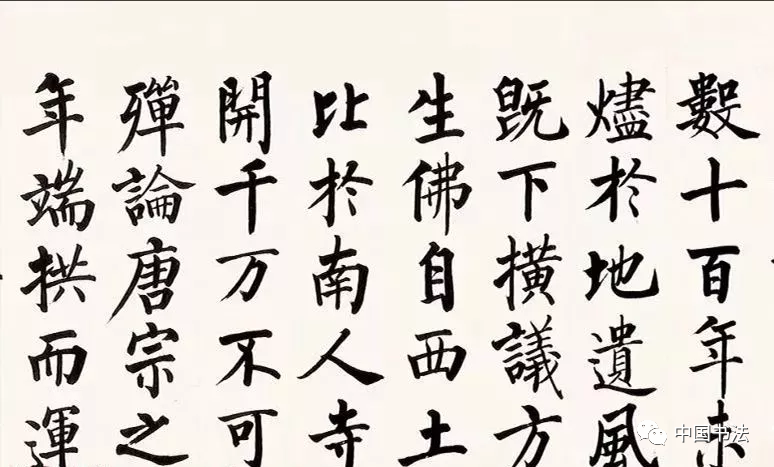 數十百年未
燼於地遺風
既下橫議方
生佛自西土
比於南人寺
開千万不可
殫論唐宗之
年端拱而運
中国书法